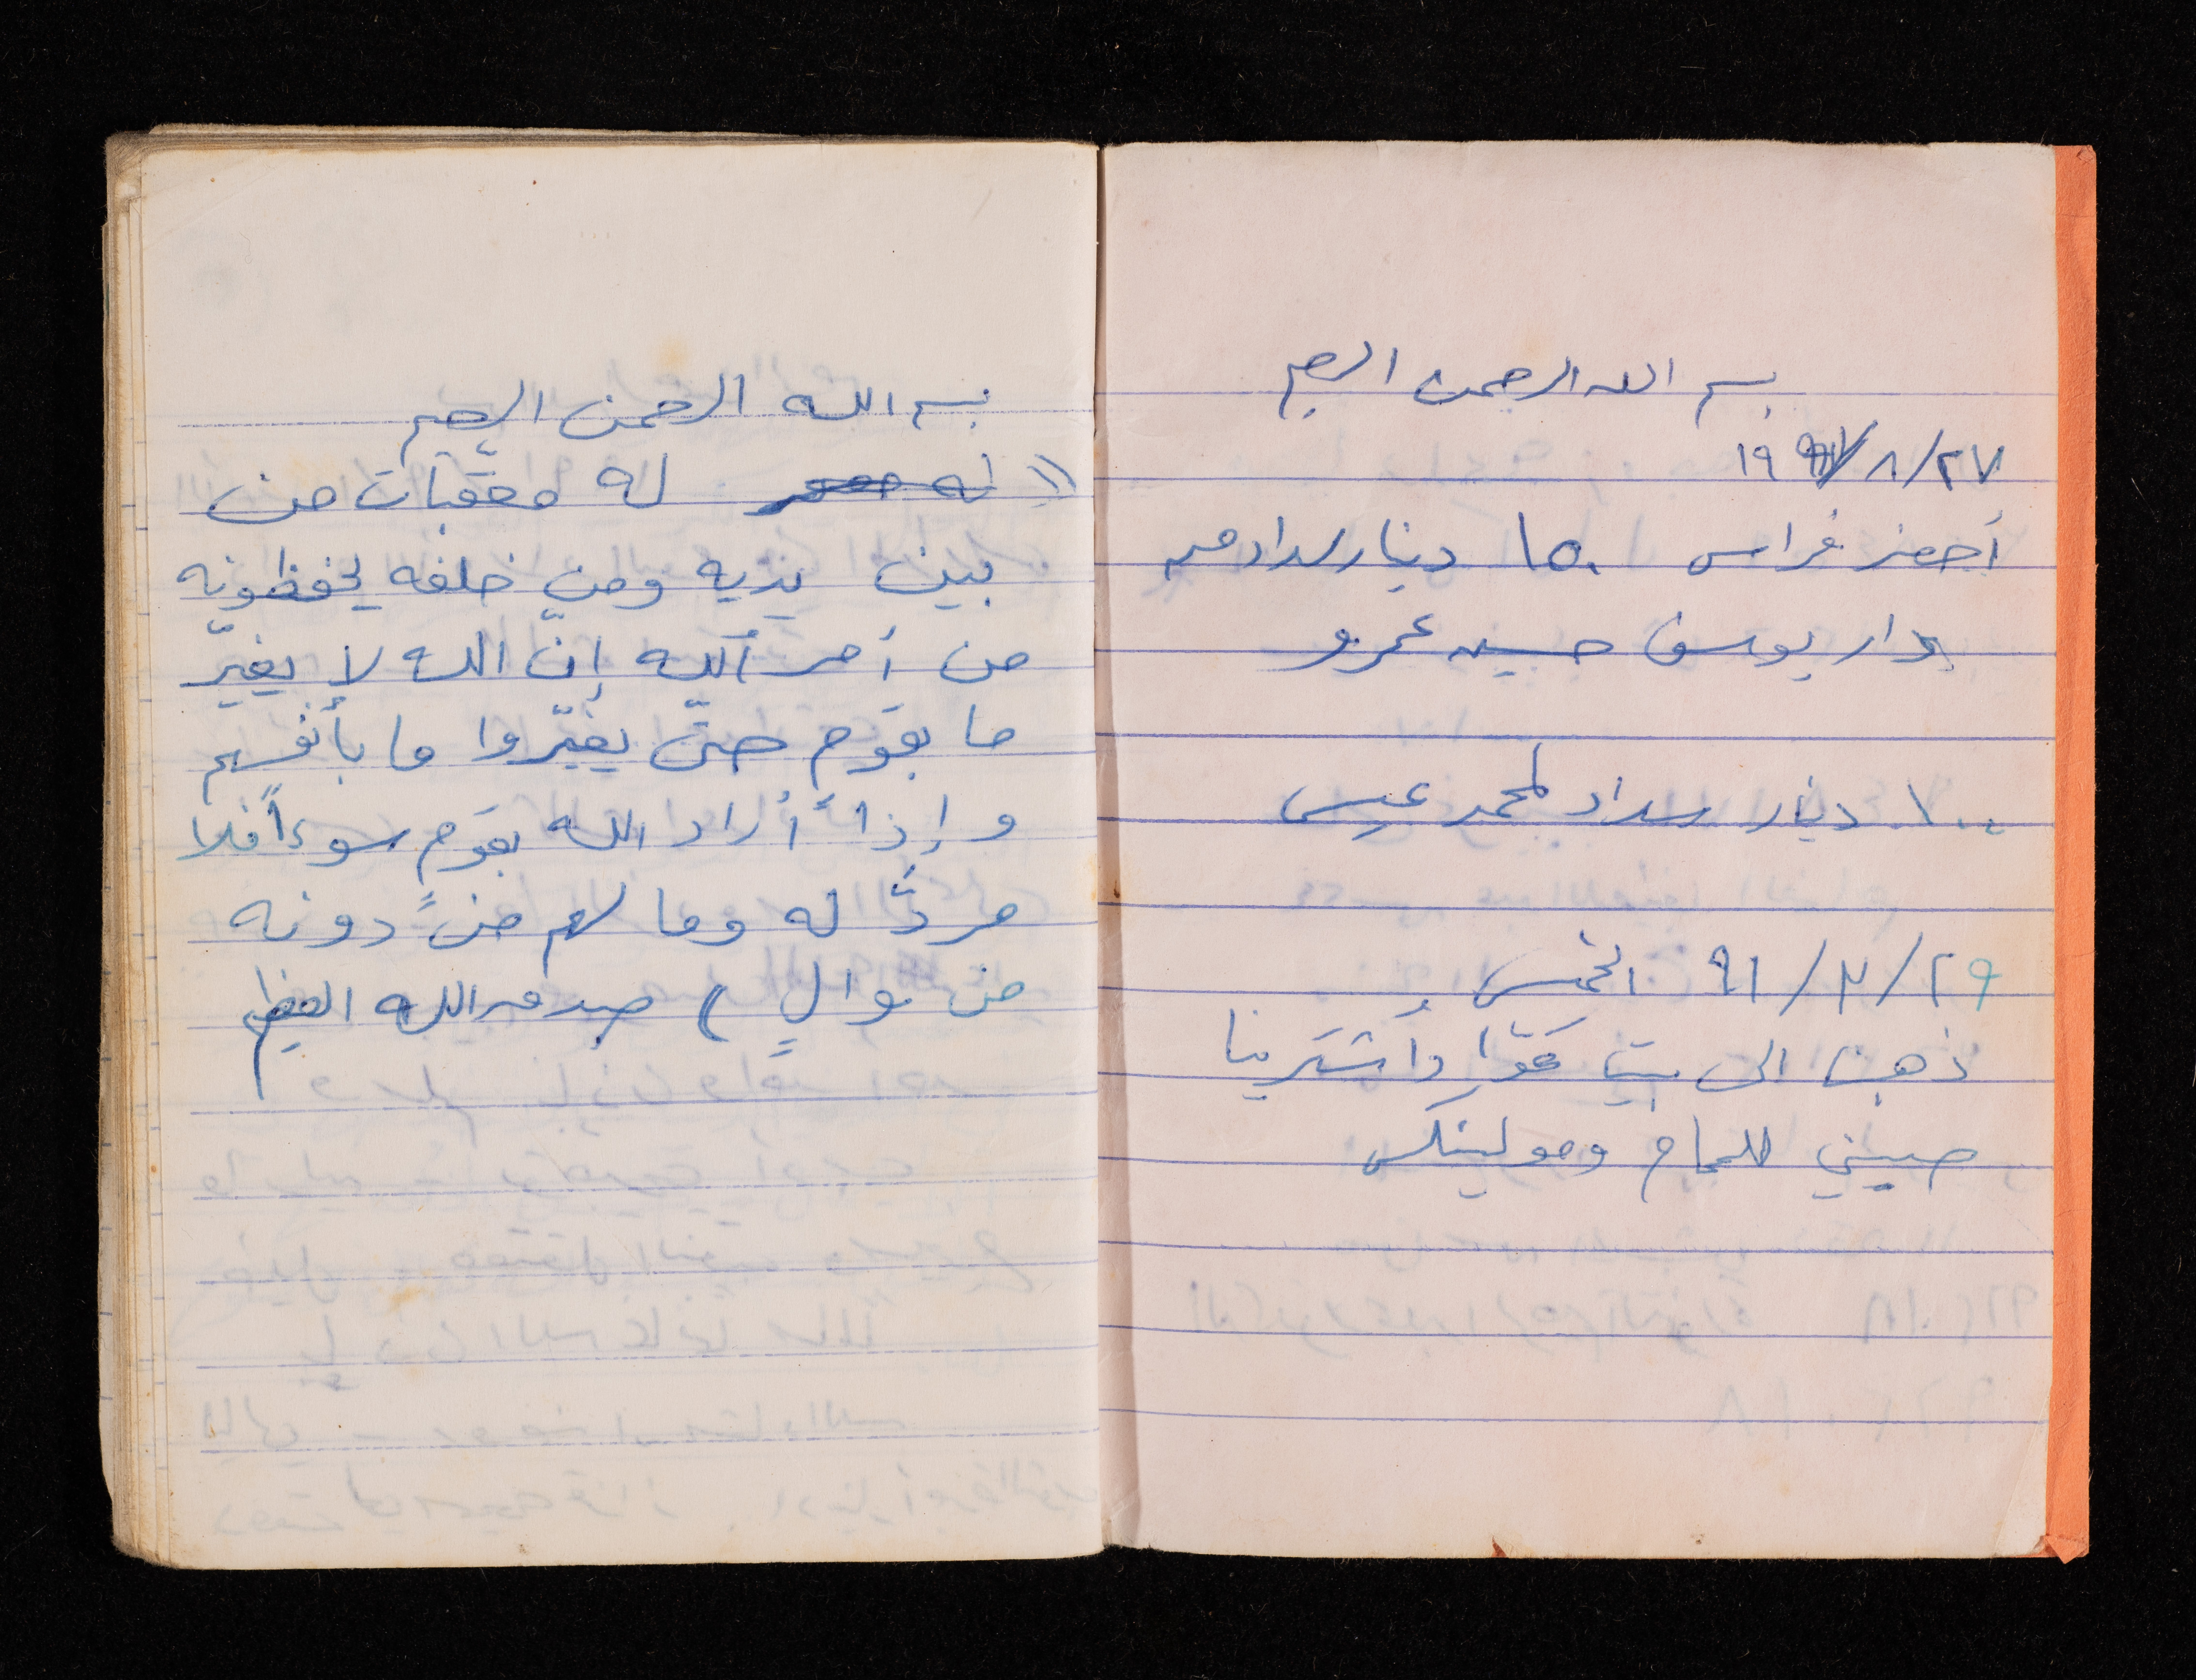 بسم الله الرحمن الرحيم
٢٧/٨/ ١٩
أحضر فراس ١٥٠ دينار سداد من
دار يوسف حسين عمرو
١٠٠ دينار سداد لمحمد عيسى
٢٩/ /٩١ الخميس
ذهبنا الى بيت وأشترينا
صيني للحمام ومولينكس
بسم الله الرحمن الرحيم
(( له معقبات من
بين يديه ومن خلفه يحفظونه
من أمر الله إنّ الله لا يغيّر
ما بقومٍ حتى يغيّروا ما بأنفسهم
وإذا أراد الله بقومٍ سوءاً فلا
مردّ له وما لهم من دونه
من والٍ ) صدق الله العظيم